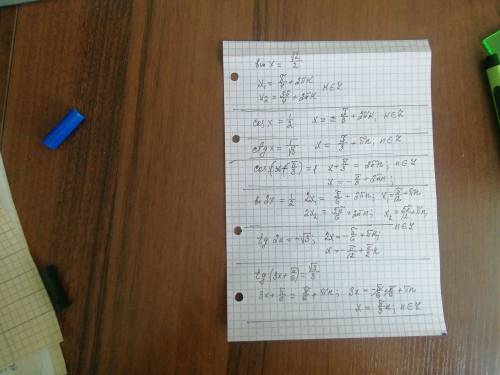 sin x = √2/2
x₁ = π/4 + 2πk
x₂ = 3π/4 + 2πk n∈Z
cos x = 1/2 x = ± π/3 + 2πk, n∈Z
ctg x = 1/√3 x = π/3 + πn; n∈Z
cos(x + π/3) = 1 x + π/3 = 2πn; n∈Z
x = -π/3 + 2πn;
sin 2x = 1/2 2x₁ = π/6 + 2πn; x₁ = π/12 + πn
2x₂ = 5π/6 + 2πn; x₂ = 5π/12 + πn;
n∈Z
tg 2x = -√3; 2x = -π/6 + πn;
x = -π/12 + π/2 n
tg (3x + π/6) = √3/3
3x + π/6 = π/6 + πn; 3x = -π/6 + π/6 + πn
x = π/3 n; n∈Z